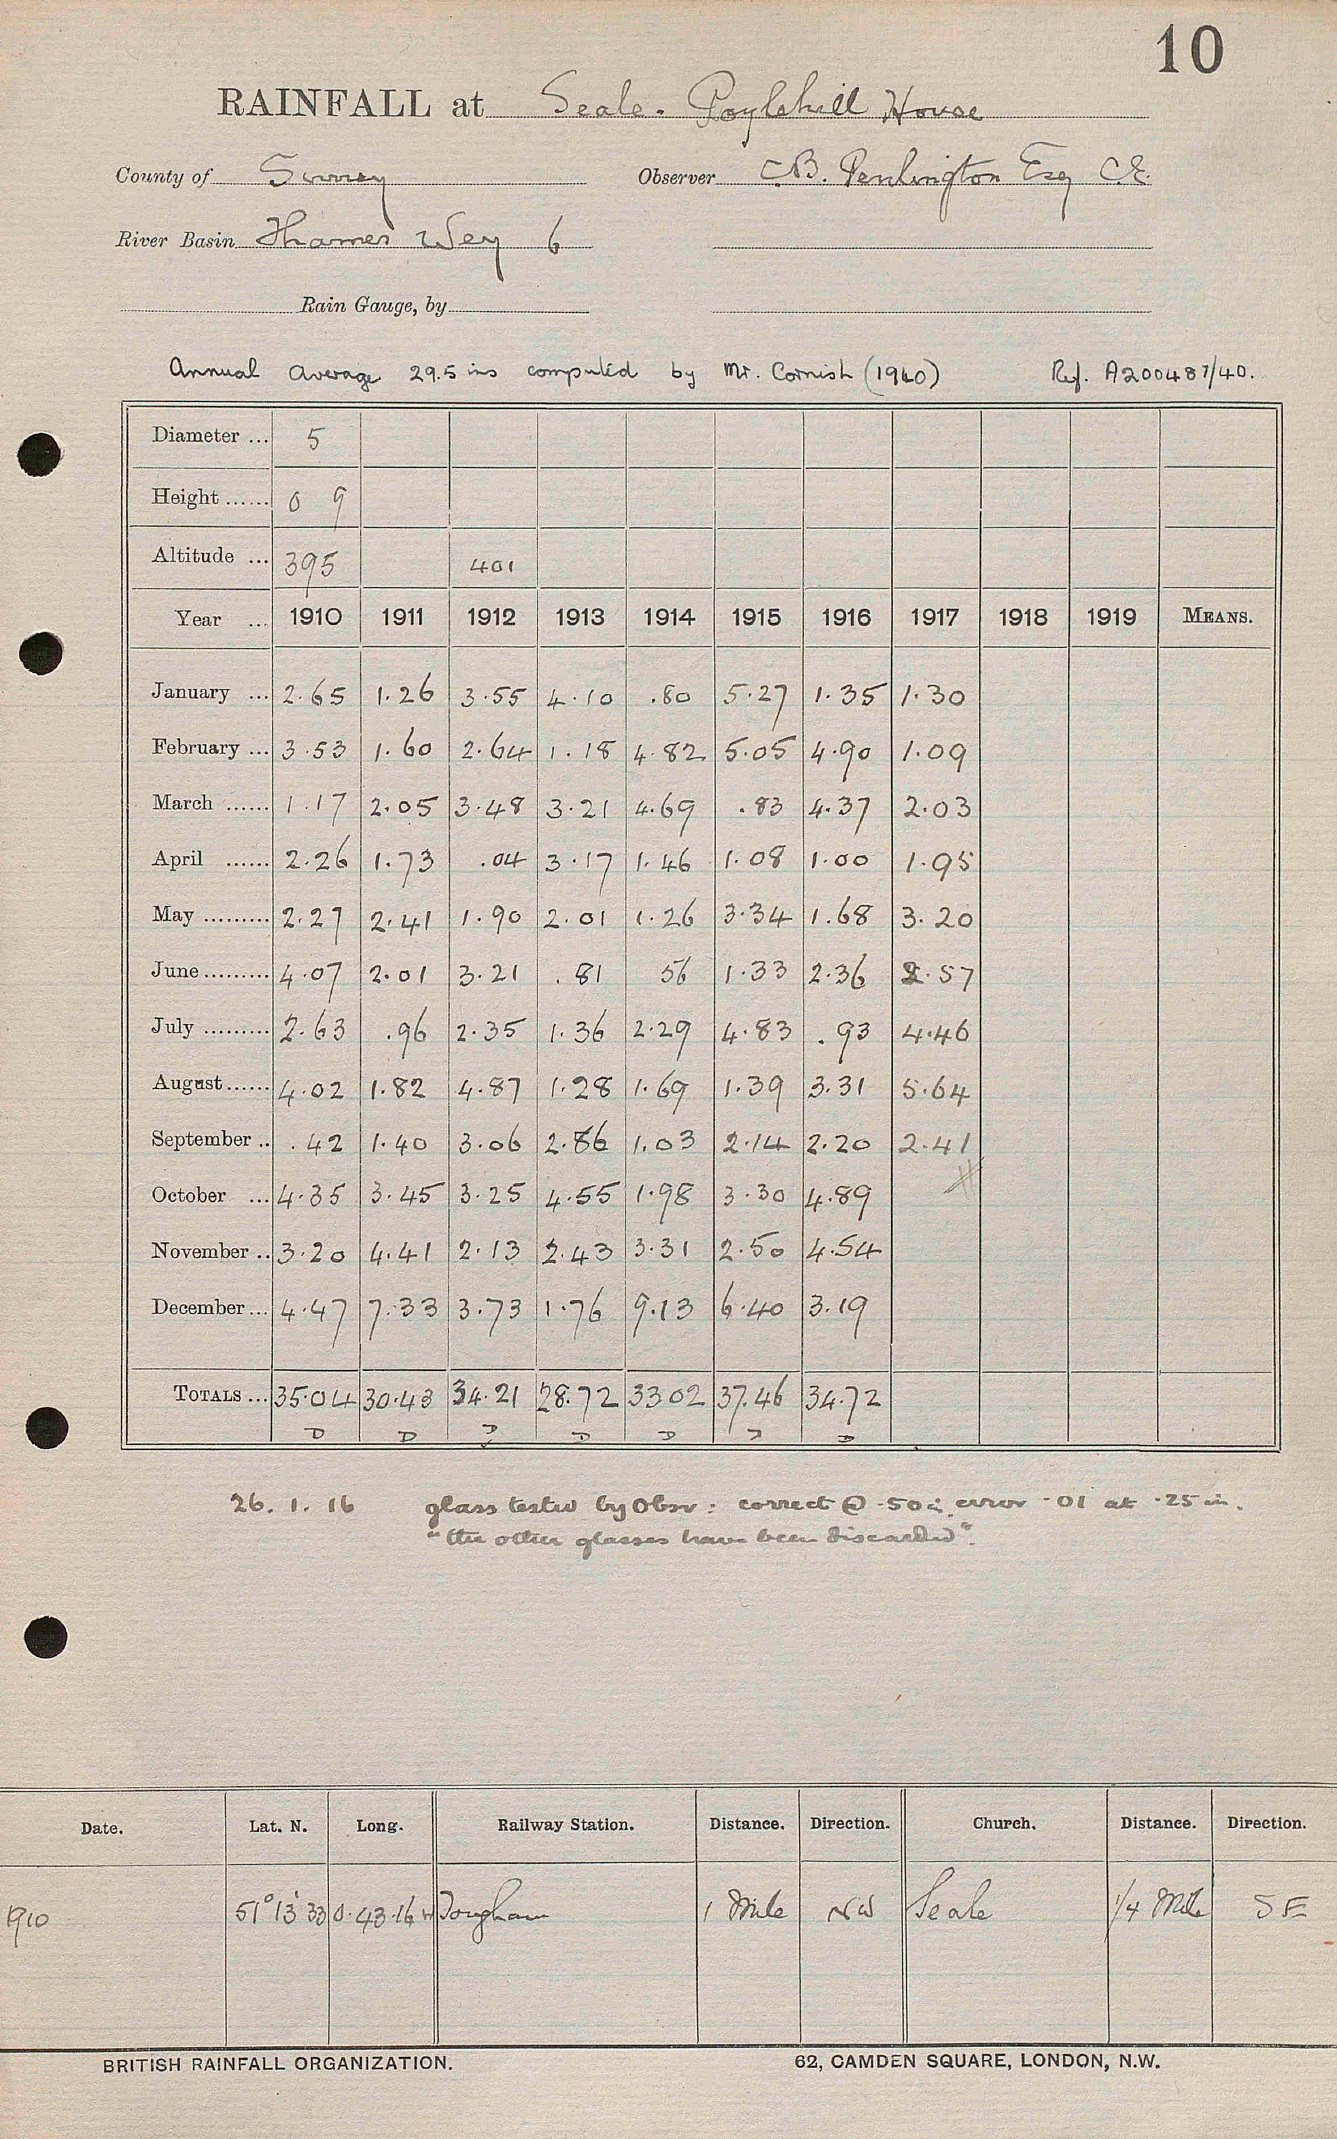 10
RAINFALL at Seale. Poylehill House
County of Surrey Observer C.B. Penlington Esq C.E.
River Basin Thames Wey 6
Rain Gauge, by
Annual Average 29.5 ins computed by Mr. Cornish (1940) Ref. A200487/40.
Diameter ... 5
Height ...... 0 9
Altitude ... 395 401
Year ... 1910 1911 1912 1913 1914 1915 1916 1917 1918 1919 MEANS.
January ... 2.65 1.26 3.55 4.10 .80 5.27 1.35 1.30
February ... 3.53 1.60 2.64 1.18 4.82 5.05 4.90 1.09
March ...... 1.17 2.05 3.48 3.21 4.69 .83 4.37 2.03
April ...... 2.26 1.73 .04 3.17 1.46 1.08 1.00 1.95
May ......... 2.27 2.41 1.90 2.01 1.26 3.34 1.68 3.20
June ......... 4.07 2.01 3.21 .81 56 1.33 2.36 2.57
July ......... 2.63 .96 2.35 1.36 2.29 4.83 .93 4.46
August ...... 4.02 1.82 4.87 1.28 1.69 1.39 3.31 5.64
September .. .42 1.40 3.06 2.86 1.03 2.14 2.20 2.41
October ... 4.35 3.45 3.25 4.55 1.98 3.30 4.89
November .. 3.20 4.41 2.13 2.43 3.31 2.50 4.54
December ... 4.47 7.33 3.73 1.76 9.13 6.40 3.19
TOTALS ... 35.04 30.43 34.21 28.72 33 02 37.46 34.72
D D D D D D D
26. 1. 16 glass tested by Obsr: correct @ .50 in error .01 at .25 in.
"the other glasses have been discarded".
Date. Lat. N. Long. Railway Station. Distance. Direction. Church. Distance. Direction.
1910 51° 13' 33 0.43.16 W Tongham 1 Mile NW Seale 1/4 Mile SE
BRITISH RAINFALL ORGANIZATION. 62, CAMDEN SQUARE, LONDON, N.W.